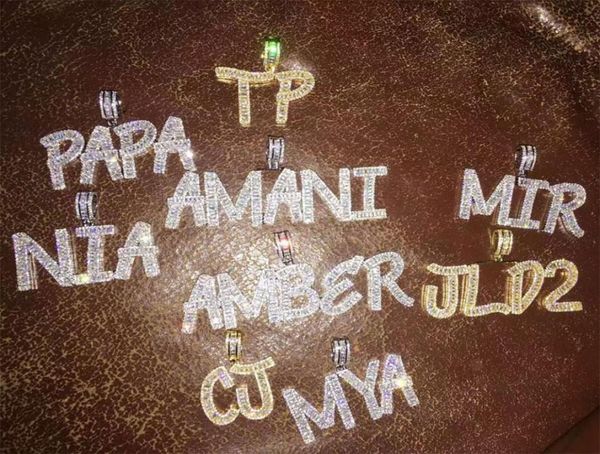 TP
PAPA
AMANI
MIR
NIA
AMBER
JLD2
CJ
MYA